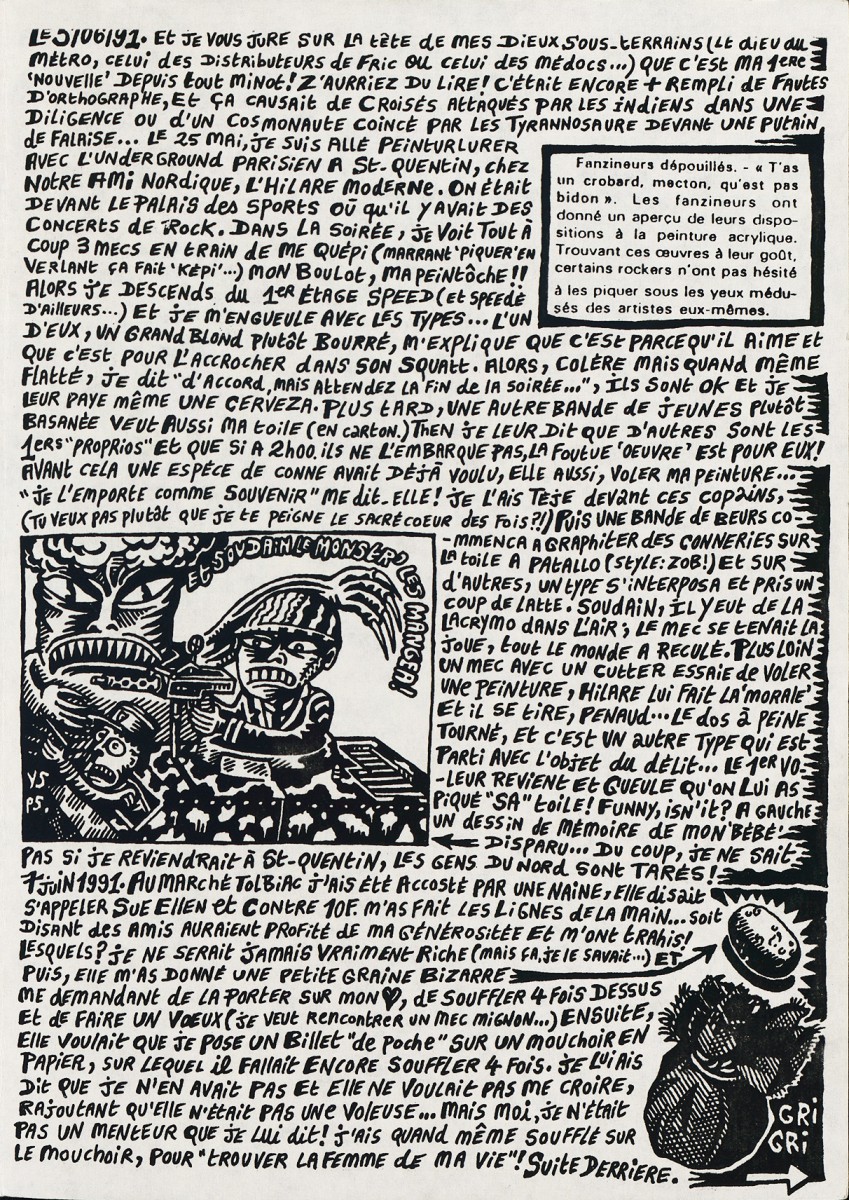 LE 5/06/91. ET JE VOUS JURE SUR LA tÊTE de MES DIEUX SOUS-TERRAINS (LE dIEU du
MÉTRO, CELUI des DISTRIBUTEURS DE FRIC OU CELUI des MÉDOCS...) QUE C'EST MA 1ERE
'NOUVELLE' DEPUIS tout MINOt! Z'AURRIEZ DU LIRE! C'ÉTAIT ENCORE + REMPLI DE FAUTES
D'ORTHOGRAPHE, ET ÇA CAUSAIT DE CROISÉS AttAQUÉS PAR LES INDIENS DANS UNE
DILIGENCE OU d'UN COSMONAUTE COINCÉ PAR LES TYRANNOSAURE DEVANT UNE PUTAIN
de FALAISE... LE 25 MAI, JE SUIS ALLÉ PEINTURLURER
AVEC L'UNDERGROUND PARISIEN A St-QUENTIN, CHEZ
NOTRE AMI NORDIQUE, L'HILARE MODERNE. ON ÉTAIT
DEVANT LE PALAIS des SPORTS OÛ qu'IL Y AVAIT DES
CONCERTS de ROCK. DANS LA SOIRÉE, JE VOIT TOUT À
COUP 3 MECS EN TRAIN DE ME QUÉPI (MARRANT 'PIQUER' EN
VERLANT ÇA FAIT 'KÉPI'...) MON BOULOT, MA PEINTÔCHE!!
ALORS JE DESCENDS du 1ER ÉTAGE SPEED (ET SPEEDÉ
D'AILLEURS...) ET JE M'ENGUEULE AVEC LES TYPES... L'UN
D'EUX, UN GRAND BLOND PLUTÔT BOURRÉ, M'EXPLIQUE QUE C'EST PARCEQU'IL AIME ET
QUE C'EST POUR L'ACCROCHER DANS SON SQUATT. ALORS, COLÈRE MAIS QUAND MÊME
FLATTÉ, JE DIT "D'ACCORD, MAIS ATTENDEZ LA FIN de la SOIRÉE...", ILS SONT OK ET JE
LEUR PAYE MÊME UNE CERVEZA. PLUS tARD, UNE AUTRE BANDE de JEUNES PLUTÔT
BASANÉE VEUT AUSSI MA TOILE (EN CARTON.) THEN JE LEUR DIT QUE D'AUTRES SONT LES
1ERS "PROPRIOS" ET QUE SI A 2h00, ILS NE L'EMBARQUE PAS, LA FOUTUE 'OEUVRE' EST POUR EUX!
AVANT CELA UNE ESPÈCE DE CONNE AVAIT DÉJÀ VOULU, ELLE AUSSI, VOLER MA PEINTURE...
"JE L'EMPORTE COMME SOUVENIR" ME dIt-ELLE! JE L'AIS TEJE DEVANT CES COPAINS,
(TU VEUX PAS PLUTÔT QUE JE TE PEIGNE LE SACRÉ COEUR DES FOIS?!) PUIS UNE BANDE DE BEURS CO-
-MMENCA A GRAPHITER DES CONNERIES SUR
LA TOILE A PATALLO (STYLE: ZOB!) ET SUR
d'AUTRES, UN TYPE S'INTERPOSA ET PRIS UN
COUP DE LATTE. SOUDAIN, IL Y EUT DE LA
LACRYMO DANS L'AIR; LE MEC SE TENAIT LA
JOUE, tOUT LE MONDE A RECULÉ. PLUS LOIN
UN MEC AVEC UN CUTTER ESSAIE DE VOLER
UNE PEINTURE, HILARE LUI FAIT LA 'MORALE'
ET IL SE TIRE, PENAUD... LE dOS À PEINE
TOURNÉ, ET C'EST UN AUTRE TYPE QUI EST
PARTI AVEC L'OBJET DU DÉLIT... LE 1ER VO-
-LEUR REVIENT ET GUEULE QU'ON LUI AS
PIQUÉ "SA" TOILE! FUNNY, ISN'IT? A GAUCHE
UN DESSIN DE MÉMOIRE DE MON 'BÉBÉ'
DISPARU... DU COUP, JE NE SAIT
PAS SI JE REVIENDRAIT À St-QUENTIN, LES GENS DU NORD SONT TARÉS!
7 JUIN 1991. AU MARCHÉ TOLBIAC J'AIS ÉTÉ ACCOSTÉ PAR UNE NAINE, ELLE DISAIT
S'APPELER SUE ELLEN Et CONTRE 10F. M'AS FAIT LES LIGNES DE LA MAIN... SOIT
DISANT des AMIS AURAIENT PROFITÉ DE MA GÉNÉROSITÉE ET M'ONT TRAHIS!
LESQUELS? JE NE SERAIT JAMAIS VRAIMENT RICHE (MAIS ÇA, JE LE SAVAIT...) ET
PUIS, ELLE M'AS DONNÉ UNE PETITE GRAINE BIZARRE
ME DEMANDANT DE LA PORTER SUR MON ♥, DE SOUFFLER 4 FOIS DESSUS
ET DE FAIRE UN VOEUX (JE VEUT RENCONTRER UN MEC MIGNON...) ENSUITE,
ELLE VOULAIT QUE JE POSE UN BILLET "de POCHE" SUR UN MOUCHOIR EN
PAPIER, SUR LEQUEL IL FALLAIT ENCORE SOUFFLER 4 FOIS. JE LUI AIS
DIT QUE JE N'EN AVAIT PAS ET ELLE NE VOULAIT PAS ME CROIRE,
RAJOUTANT QU'ELLE N'ÉTAIT PAS UNE VOLEUSE... MAIS MOI, JE N'ÉTAIT
PAS UN MENTEUR QUE JE LUI DIT! J'AIS QUAND MÊME SOUFFLÉ SUR
LE MOUCHOIR, POUR "TROUVER LA FEMME DE MA VIE"! SUITE DERRIERE.
Fanzineurs dépouillés. - « T'as
un crobard, mecton, qu'est pas
bidon ». Les fanzineurs ont
donné un aperçu de leurs dispo-
sitions à la peinture acrylique.
Trouvant ces œuvres à leur goût,
certains rockers n'ont pas hésité
à les piquer sous les yeux médu-
sés des artistes eux-mêmes.
ET SOUDAIN LE MONSTR' LES MANGEA!
Y5
P5.
GRI
GRI